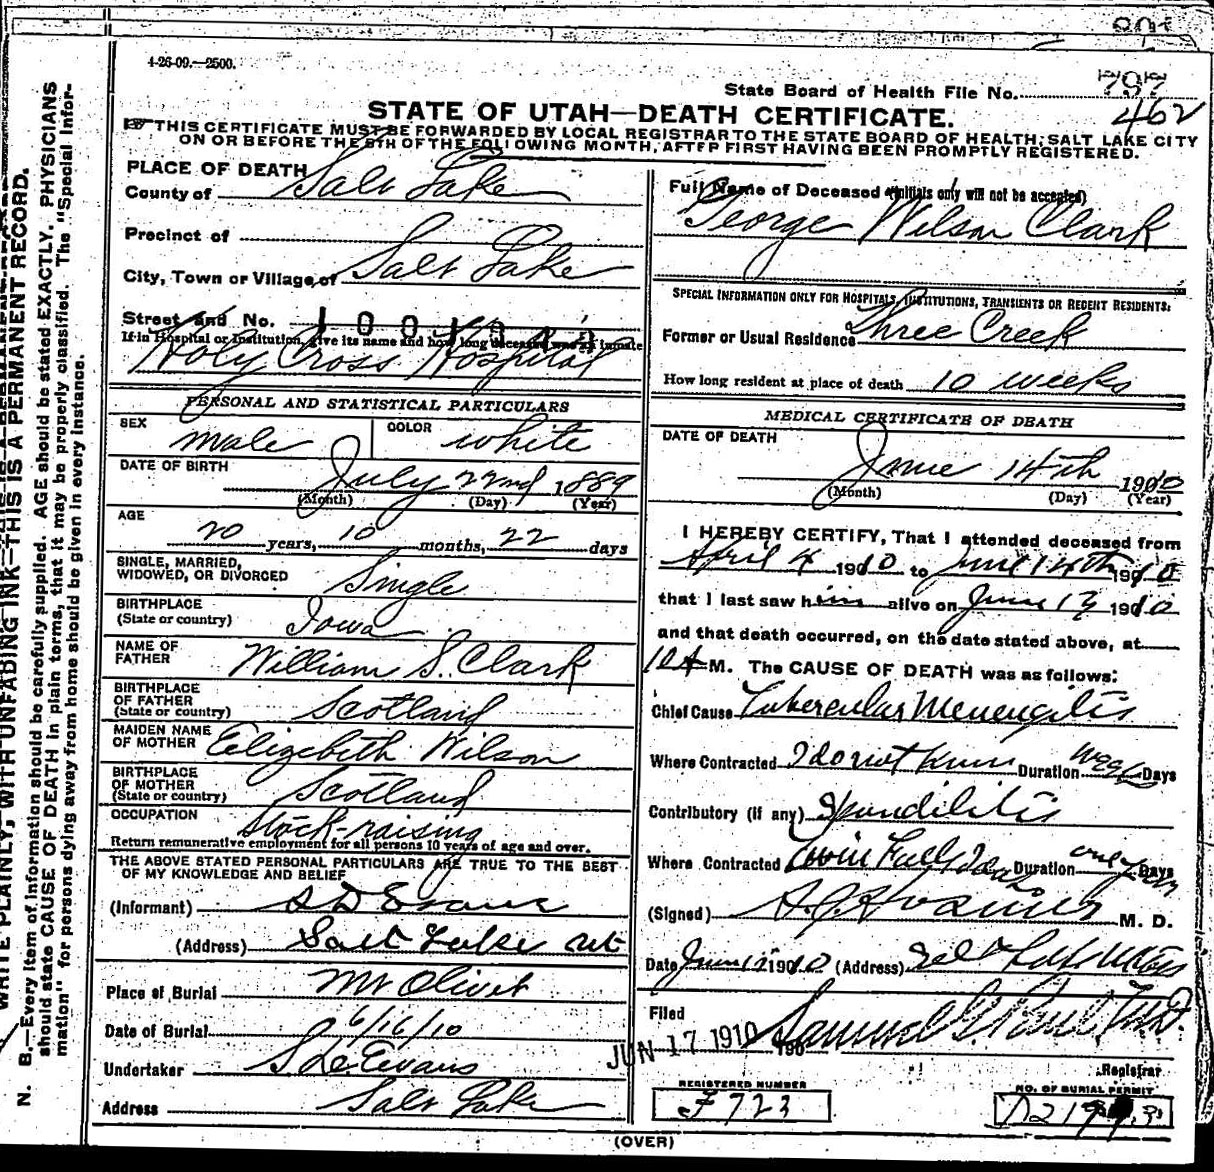 4-26-09.—2500.
State Board of Health File No. 797
462
STATE OF UTAH—DEATH CERTIFICATE.
THIS CERTIFICATE MUST BE FORWARDED BY LOCAL REGISTRAR TO THE STATE BOARD OF HEALTH, SALT LAKE CITY
ON OR BEFORE THE 5TH OF THE FOLLOWING MONTH, AFTER FIRST HAVING BEEN PROMPTLY REGISTERED.
PLACE OF DEATH
County of Salt Lake
Precinct of
City, Town or Village of Salt Lake
Street and No.
If in Hospital or Institution, give its name and how long deceased was an inmate
Holy Cross Hospital
PERSONAL AND STATISTICAL PARTICULARS
SEX male COLOR white
DATE OF BIRTH July 22nd 1889
(Month) (Day) (Year)
AGE
20 years, 10 months, 22 days
SINGLE, MARRIED,
WIDOWED, OR DIVORCED Single
BIRTHPLACE
(State or country) Iowa
NAME OF
FATHER William S. Clark
BIRTHPLACE
OF FATHER
(State or country) Scotland
MAIDEN NAME
OF MOTHER Elizebeth Wilson
BIRTHPLACE
OF MOTHER
(State or country) Scotland
OCCUPATION Stock-raising
Return remunerative employment for all persons 10 years of age and over.
THE ABOVE STATED PERSONAL PARTICULARS ARE TRUE TO THE BEST
OF MY KNOWLEDGE AND BELIEF
(Informant) S D Evans
(Address) Salt Lake Ut
Place of Burial Mt Olivet
Date of Burial 6/16/10
Undertaker S D Evans
Address Salt Lake
Full Name of Deceased (Initials only will not be accepted)
George Wilson Clark
SPECIAL INFORMATION ONLY FOR HOSPITALS, INSTITUTIONS, TRANSIENTS OR RECENT RESIDENTS:
Former or Usual Residence Three Creek
How long resident at place of death 10 weeks
MEDICAL CERTIFICATE OF DEATH
DATE OF DEATH
June 14th 1910
(Month) (Day) (Year)
I HEREBY CERTIFY, That I attended deceased from
April 4 1910 to June 14th 1910
that I last saw him alive on June 13 1910
and that death occurred, on the date stated above, at
10 A M. The CAUSE OF DEATH was as follows:
Chief Cause Tubercular Menengitis
Where Contracted I do not know Duration Days
Contributory (if any) Spondilitis
Where Contracted Twin Falls Idaho Duration Days
(Signed) M. D.
Date June 1910 (Address) Salt Lake
Filed
JUN 17 1910 190
Registrar
REGISTERED NUMBER
F 723
NO. OF BURIAL PERMIT
(OVER)
N. B.—Every item of information should be carefully supplied. AGE should be stated EXACTLY. PHYSICIANS
should state CAUSE OF DEATH in plain terms, that it may be properly classified. The "Special Infor-
mation" for persons dying away from home should be given in every instance.
WRITE PLAINLY, WITH UNFADING INK—THIS IS A PERMANENT RECORD.